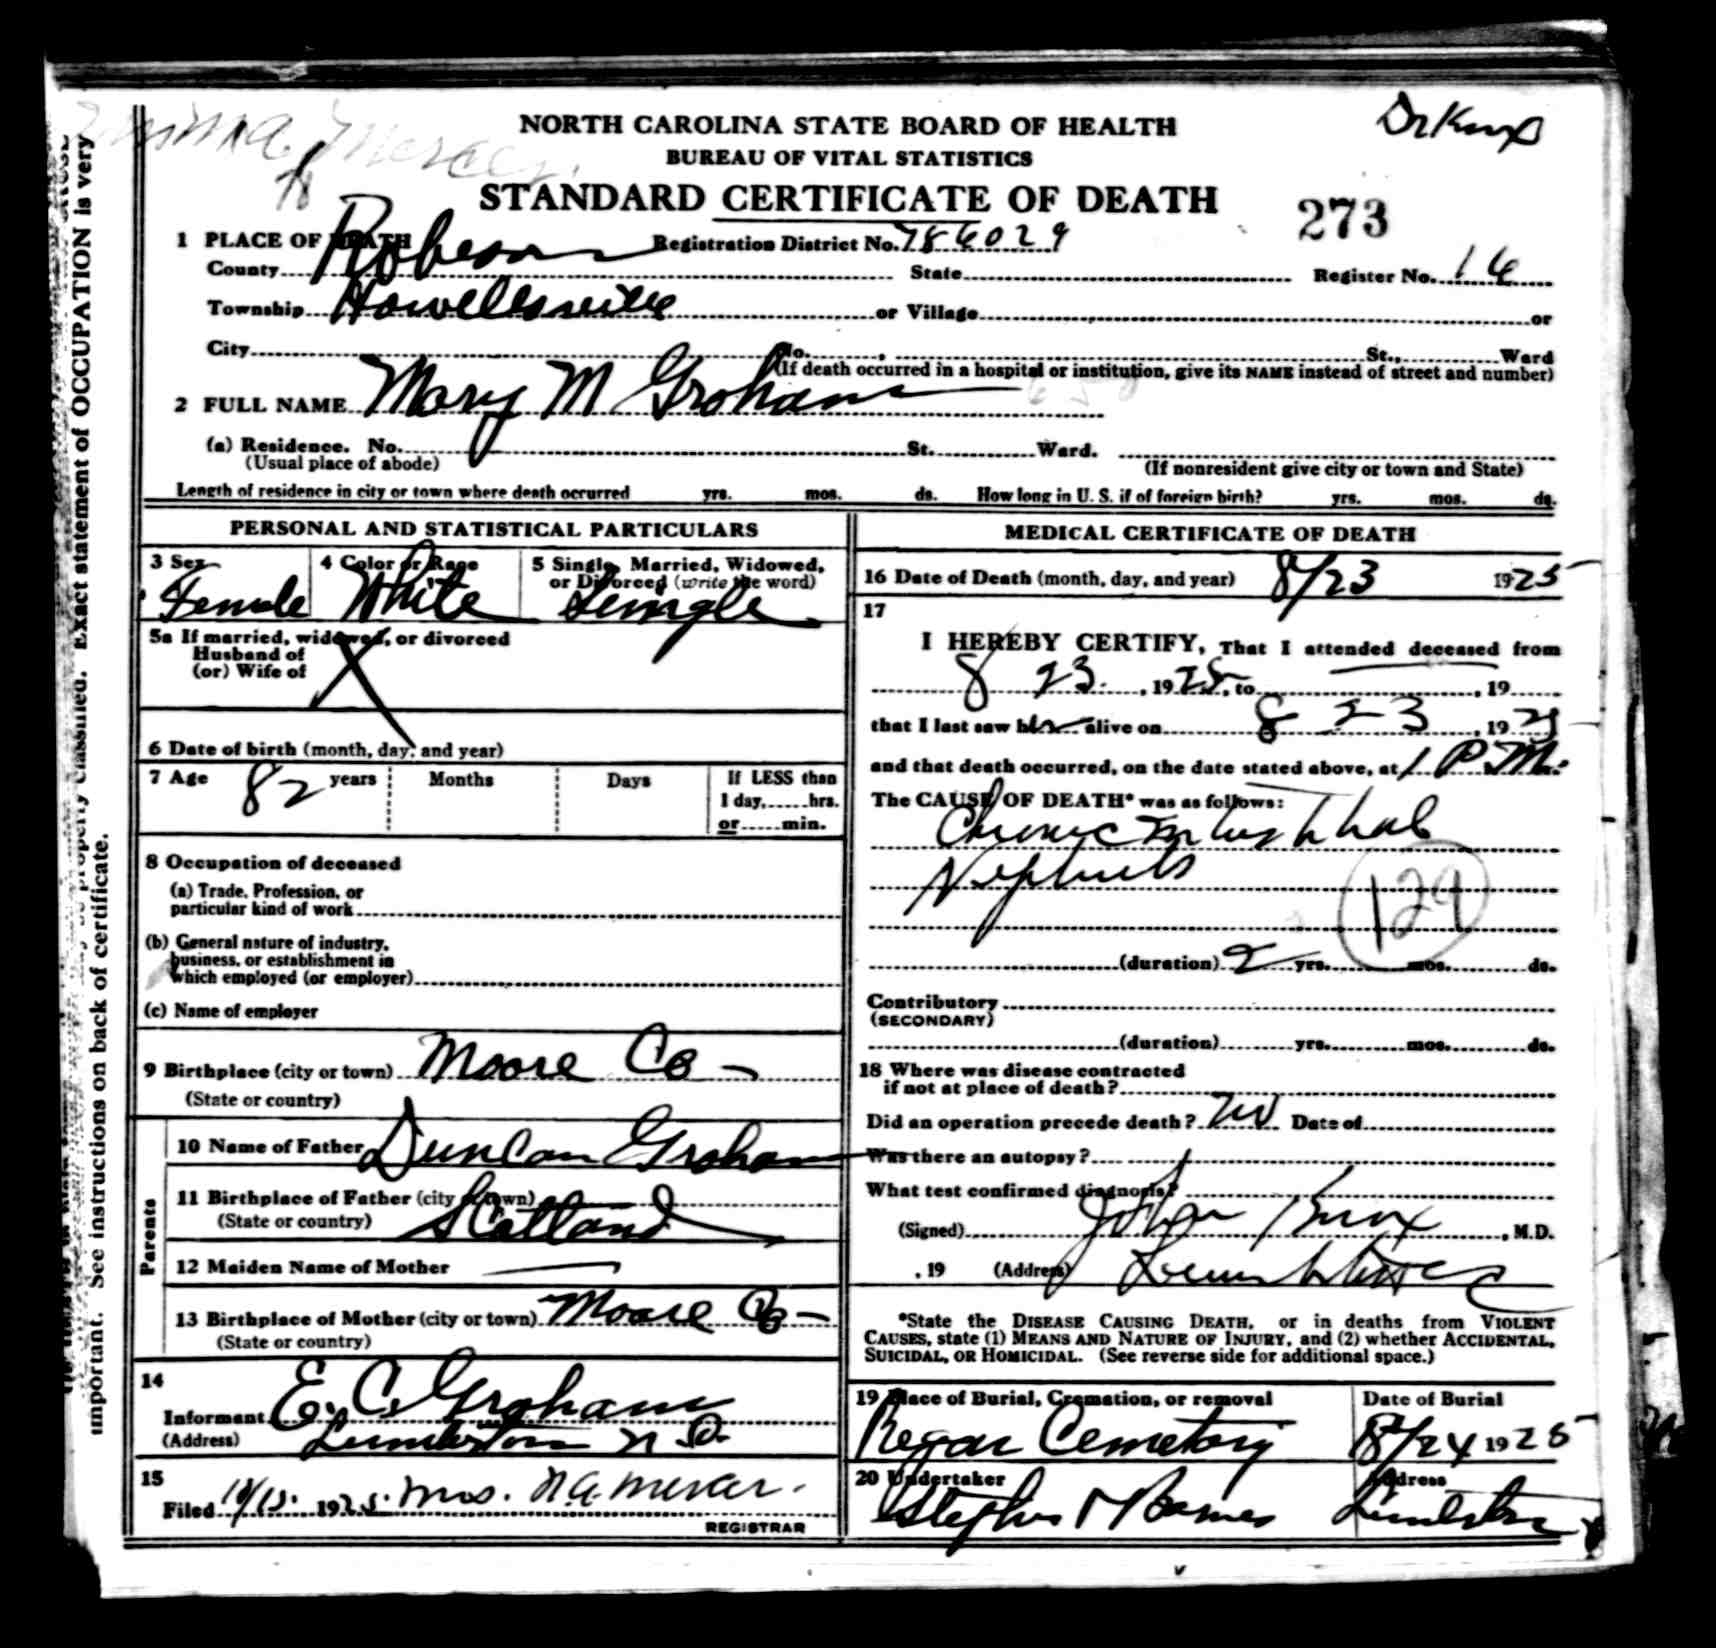 Dr Knox
NORTH CAROLINA STATE BOARD OF HEALTH
BUREAU OF VITAL STATISTICS
STANDARD CERTIFICATE OF DEATH
273
1 PLACE OF DEATH Registration District No. 786029
County Robeson State Register No. 16
Township Howellsville or Village or
City No. , St., Ward
(If death occurred in a hospital or institution, give its NAME instead of street and number)
2 FULL NAME Mary M Graham
(a) Residence. No. St. Ward.
(Usual place of abode) (If nonresident give city or town and State)
Length of residence in city or town where death occurred yrs. mos. ds. How long in U. S. if of foreign birth? yrs. mos. ds.
PERSONAL AND STATISTICAL PARTICULARS
3 Sex 4 Color or Race 5 Single, Married, Widowed,
or Divorced (write the word)
Female White Single
5a If married, widowed, or divorced
Husband of
(or) Wife of
6 Date of birth (month, day, and year)
7 Age 82 years Months Days If LESS than
1 day, hrs.
or min.
8 Occupation of deceased
(a) Trade, Profession, or
particular kind of work
(b) General nature of industry,
business, or establishment in
which employed (or employer)
(c) Name of employer
9 Birthplace (city or town) Moore Co
(State or country)
Parents
10 Name of Father Duncan Graham
11 Birthplace of Father (city or town)
(State or country) Scotland
12 Maiden Name of Mother
13 Birthplace of Mother (city or town) Moore Co
(State or country)
14
Informant E. C. Graham
(Address) Lumberton N.C.
15
Filed 10/15. 1925. Mrs. N.A. Mercer.
REGISTRAR
MEDICAL CERTIFICATE OF DEATH
16 Date of Death (month, day, and year) 8/23 1925
17
I HEREBY CERTIFY, That I attended deceased from
8 23 , 1925, to , 19
that I last saw her alive on 8 23 , 1925
and that death occurred, on the date stated above, at 1 P.M.
The CAUSE OF DEATH* was as follows:
Chronic Interstitial
Nephritis
129
(duration) 2 yrs. mos. ds.
Contributory
(SECONDARY)
(duration) yrs. mos. ds.
18 Where was disease contracted
if not at place of death?
Did an operation precede death? no Date of
Was there an autopsy?
What test confirmed diagnosis?
(Signed) John Knox , M.D.
, 19 (Address) Lumberton
*State the DISEASE CAUSING DEATH, or in deaths from VIOLENT
CAUSES, state (1) MEANS AND NATURE OF INJURY, and (2) whether ACCIDENTAL,
SUICIDAL, OR HOMICIDAL. (See reverse side for additional space.)
19 Place of Burial, Cremation, or removal Date of Burial
Regan Cemetery 8/24 1925
20 Undertaker Address
Stephens & Barnes Lumberton
OCCUPATION is very
Exact statement of
properly classified.
important. See instructions on back of certificate.